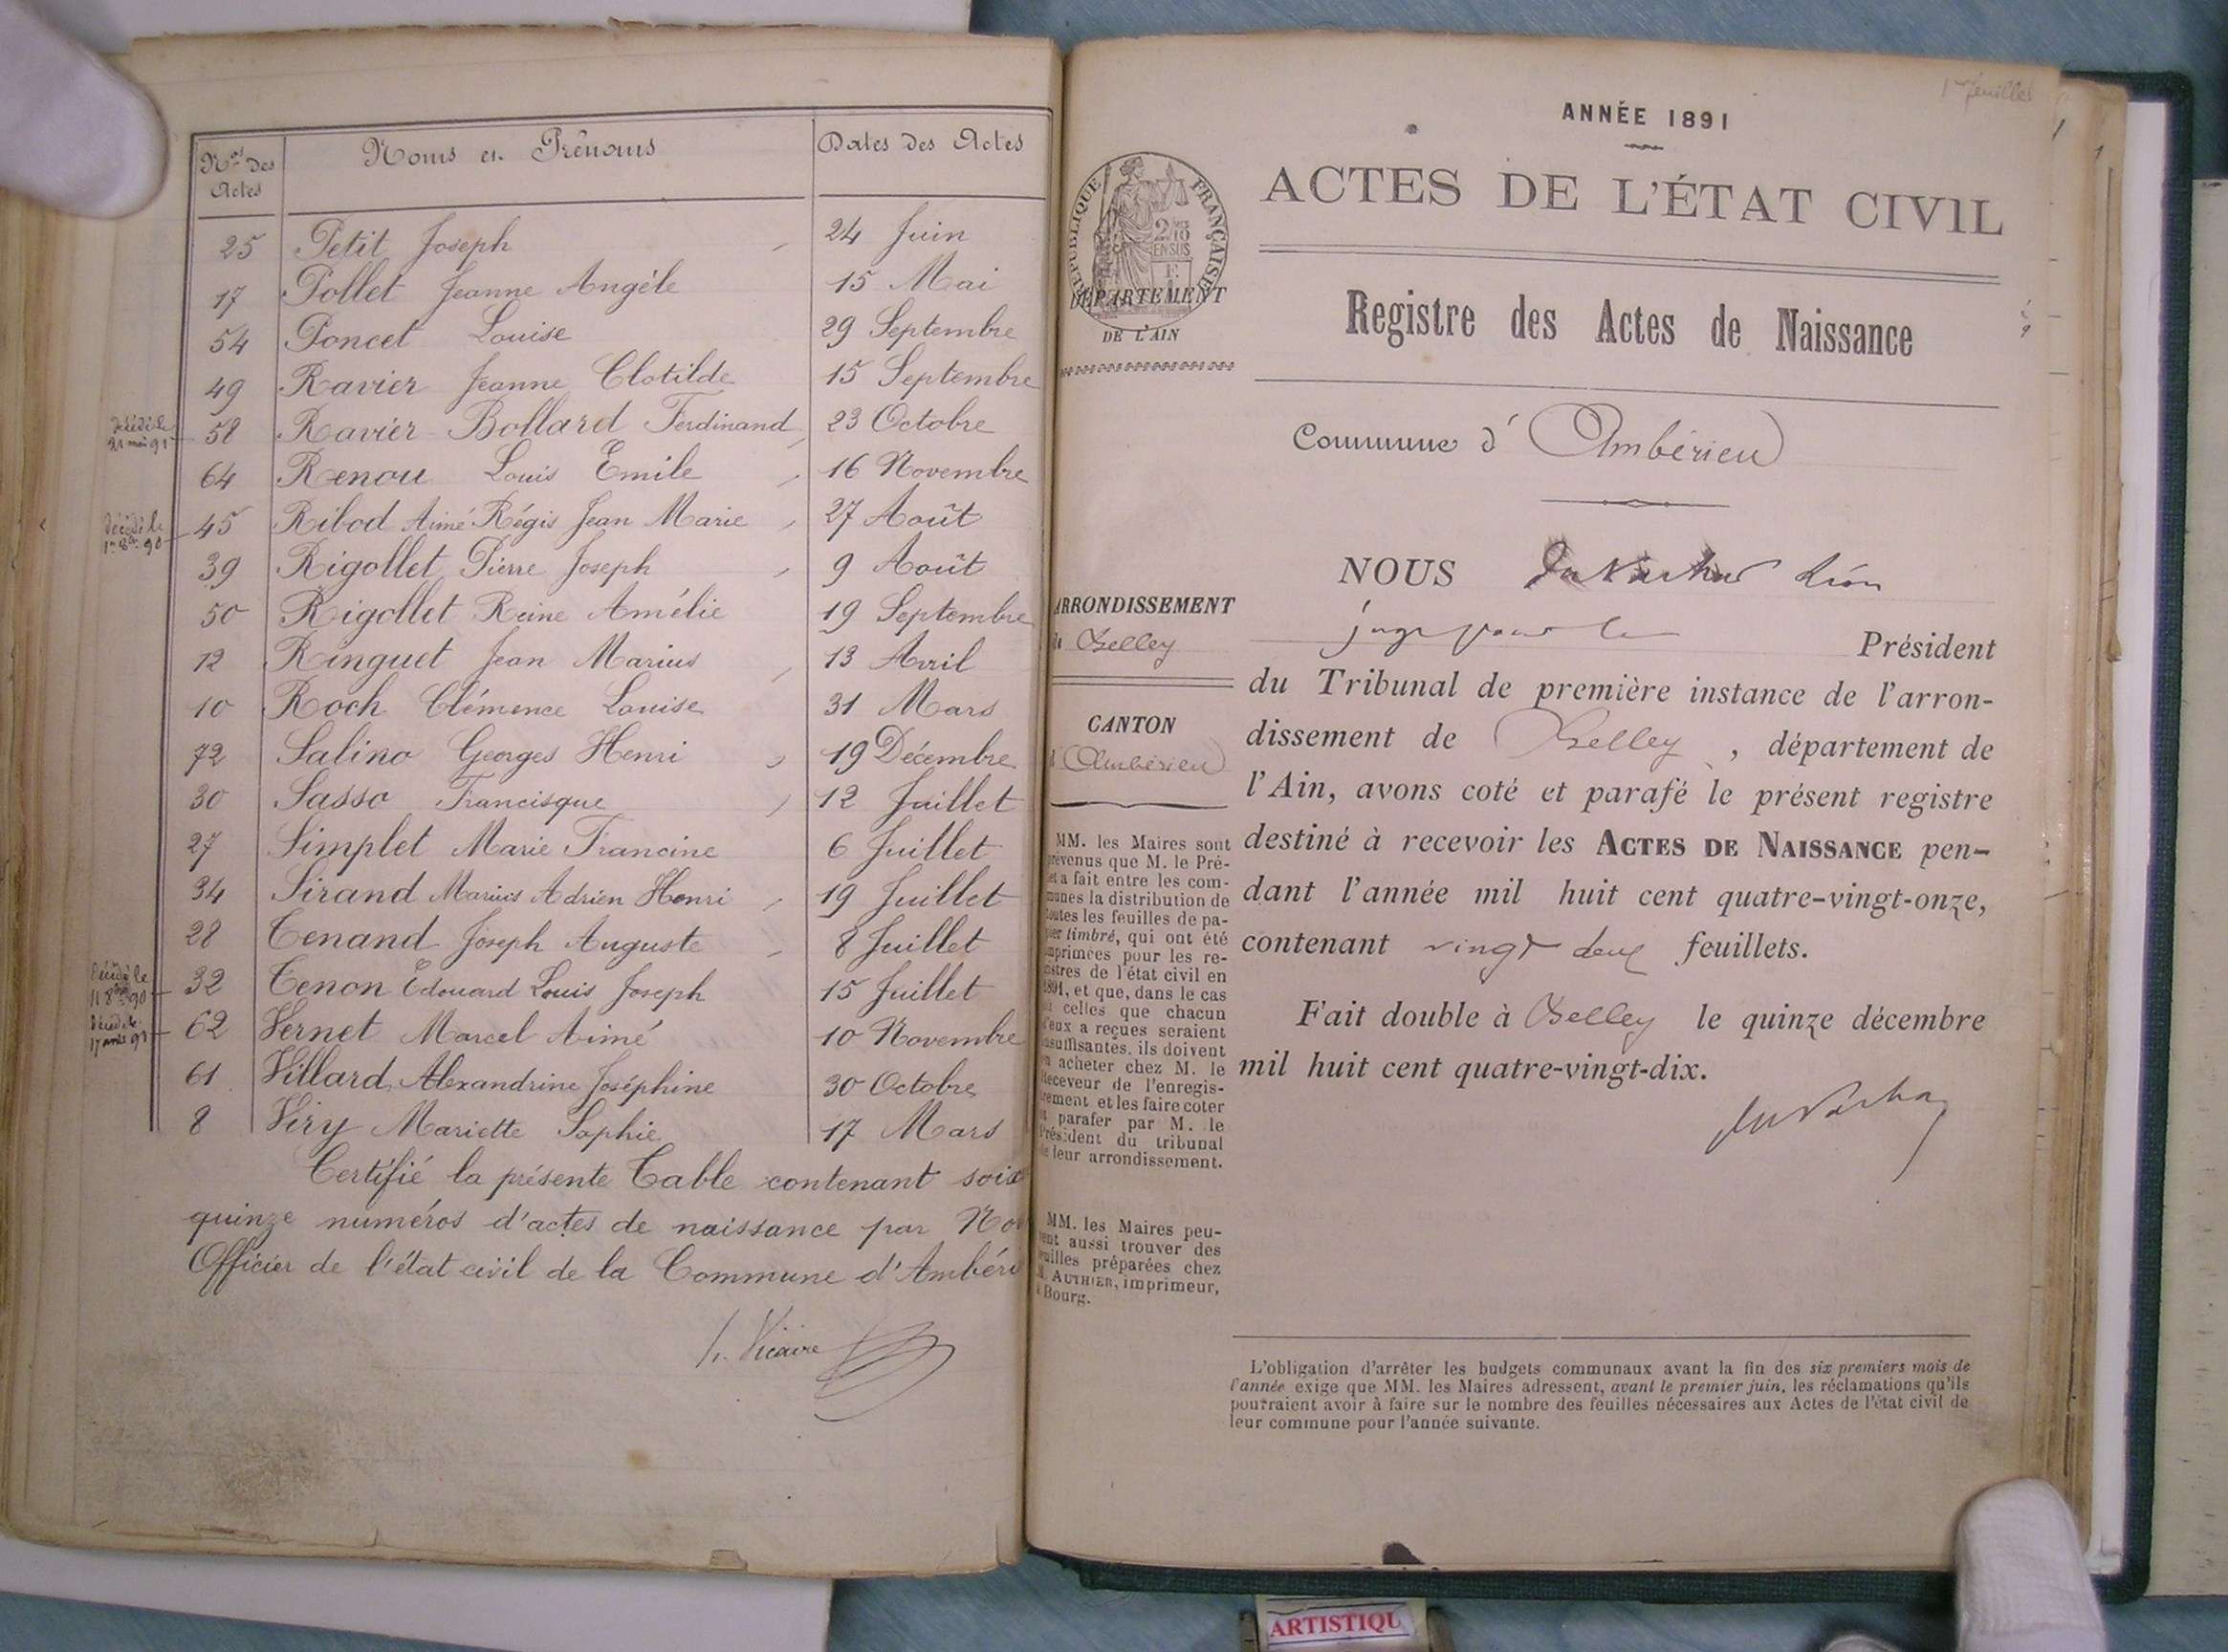 Nos des Actes
Noms et Prénoms
Dates des Actes
25 Petit Joseph 24 Juin
17 Pollet Jeanne Angèle 15 Mai
54 Poncet Louise 29 Septembre
49 Ravier Jeanne Clotilde 15 Septembre
décédé le 21 mai 91 58 Ravier-Bollard Ferdinand 23 Octobre
64 Renou Louis Emile 16 Novembre
Décédé le 1er 8bre 90 45 Ribod Aimé Régis Jean Marie 27 Août
39 Rigollet Pierre Joseph 9 Août
50 Rigollet Reine Amélie 19 Septembre
12 Ringuet Jean Marius 13 Avril
10 Roch Clémence Louise 31 Mars
72 Salino Georges Henri 19 Décembre
30 Sasso Francisque 12 Juillet
27 Simplet Marie Francine 6 Juillet
34 Sirand Marius Adrien Henri 19 Juillet
28 Tenand Joseph Auguste 8 Juillet
Décédé le 11 8bre 90 32 Tenon Edouard Louis Joseph 15 Juillet
Décédé le 17 91 62 Vernet Marcel Aimé 10 Novembre
61 Villard Alexandrine Joséphine 30 Octobre
8 Viry Mariette Sophie 17 Mars
Certifié la présente Table contenant soix
quinze numéros d'actes de naissance par No
Officier de l'état civil de la Commune d'Ambéri
Vicaire
1er feuillet
1
1
ANNÉE 1891
ACTES DE L'ÉTAT CIVIL
RÉPUBLIQUE FRANÇAISE
DÉPARTEMENT
DE L'AIN
Registre des Actes de Naissance
Commune d'Ambérieu
ARRONDISSEMENT
Belley
CANTON
Ambérieu
MM. les Maires sont
prévenus que M. le Pré-
et a fait entre les com-
munes la distribution de
toutes les feuilles de pa-
pier timbré, qui ont été
imprimées pour les re-
istres de l'état civil en
1891, et que, dans le cas
celles que chacun
d'eux a reçues seraient
insuffisantes, ils doivent
acheter chez M. le
Receveur de l'enregis-
rement et les faire coter
parafer par M. le
Président du tribunal
de leur arrondissement.
MM. les Maires peu-
vent aussi trouver des
feuilles préparées chez
M. AUTHIER, imprimeur,
à Bourg.
NOUS Léon
juge pour le Président
du Tribunal de première instance de l'arron-
dissement de Belley, département de
l'Ain, avons coté et parafé le présent registre
destiné à recevoir les ACTES DE NAISSANCE pen-
dant l'année mil huit cent quatre-vingt-onze,
contenant vingt deux feuillets.
Fait double à Belley le quinze décembre
mil huit cent quatre-vingt-dix.
L'obligation d'arrêter les budgets communaux avant la fin des six premiers mois de
l'année exige que MM. les Maires adressent, avant le premier juin, les réclamations qu'ils
pourraient avoir à faire sur le nombre des feuilles nécessaires aux Actes de l'état civil de
leur commune pour l'année suivante.
ARTISTIQU